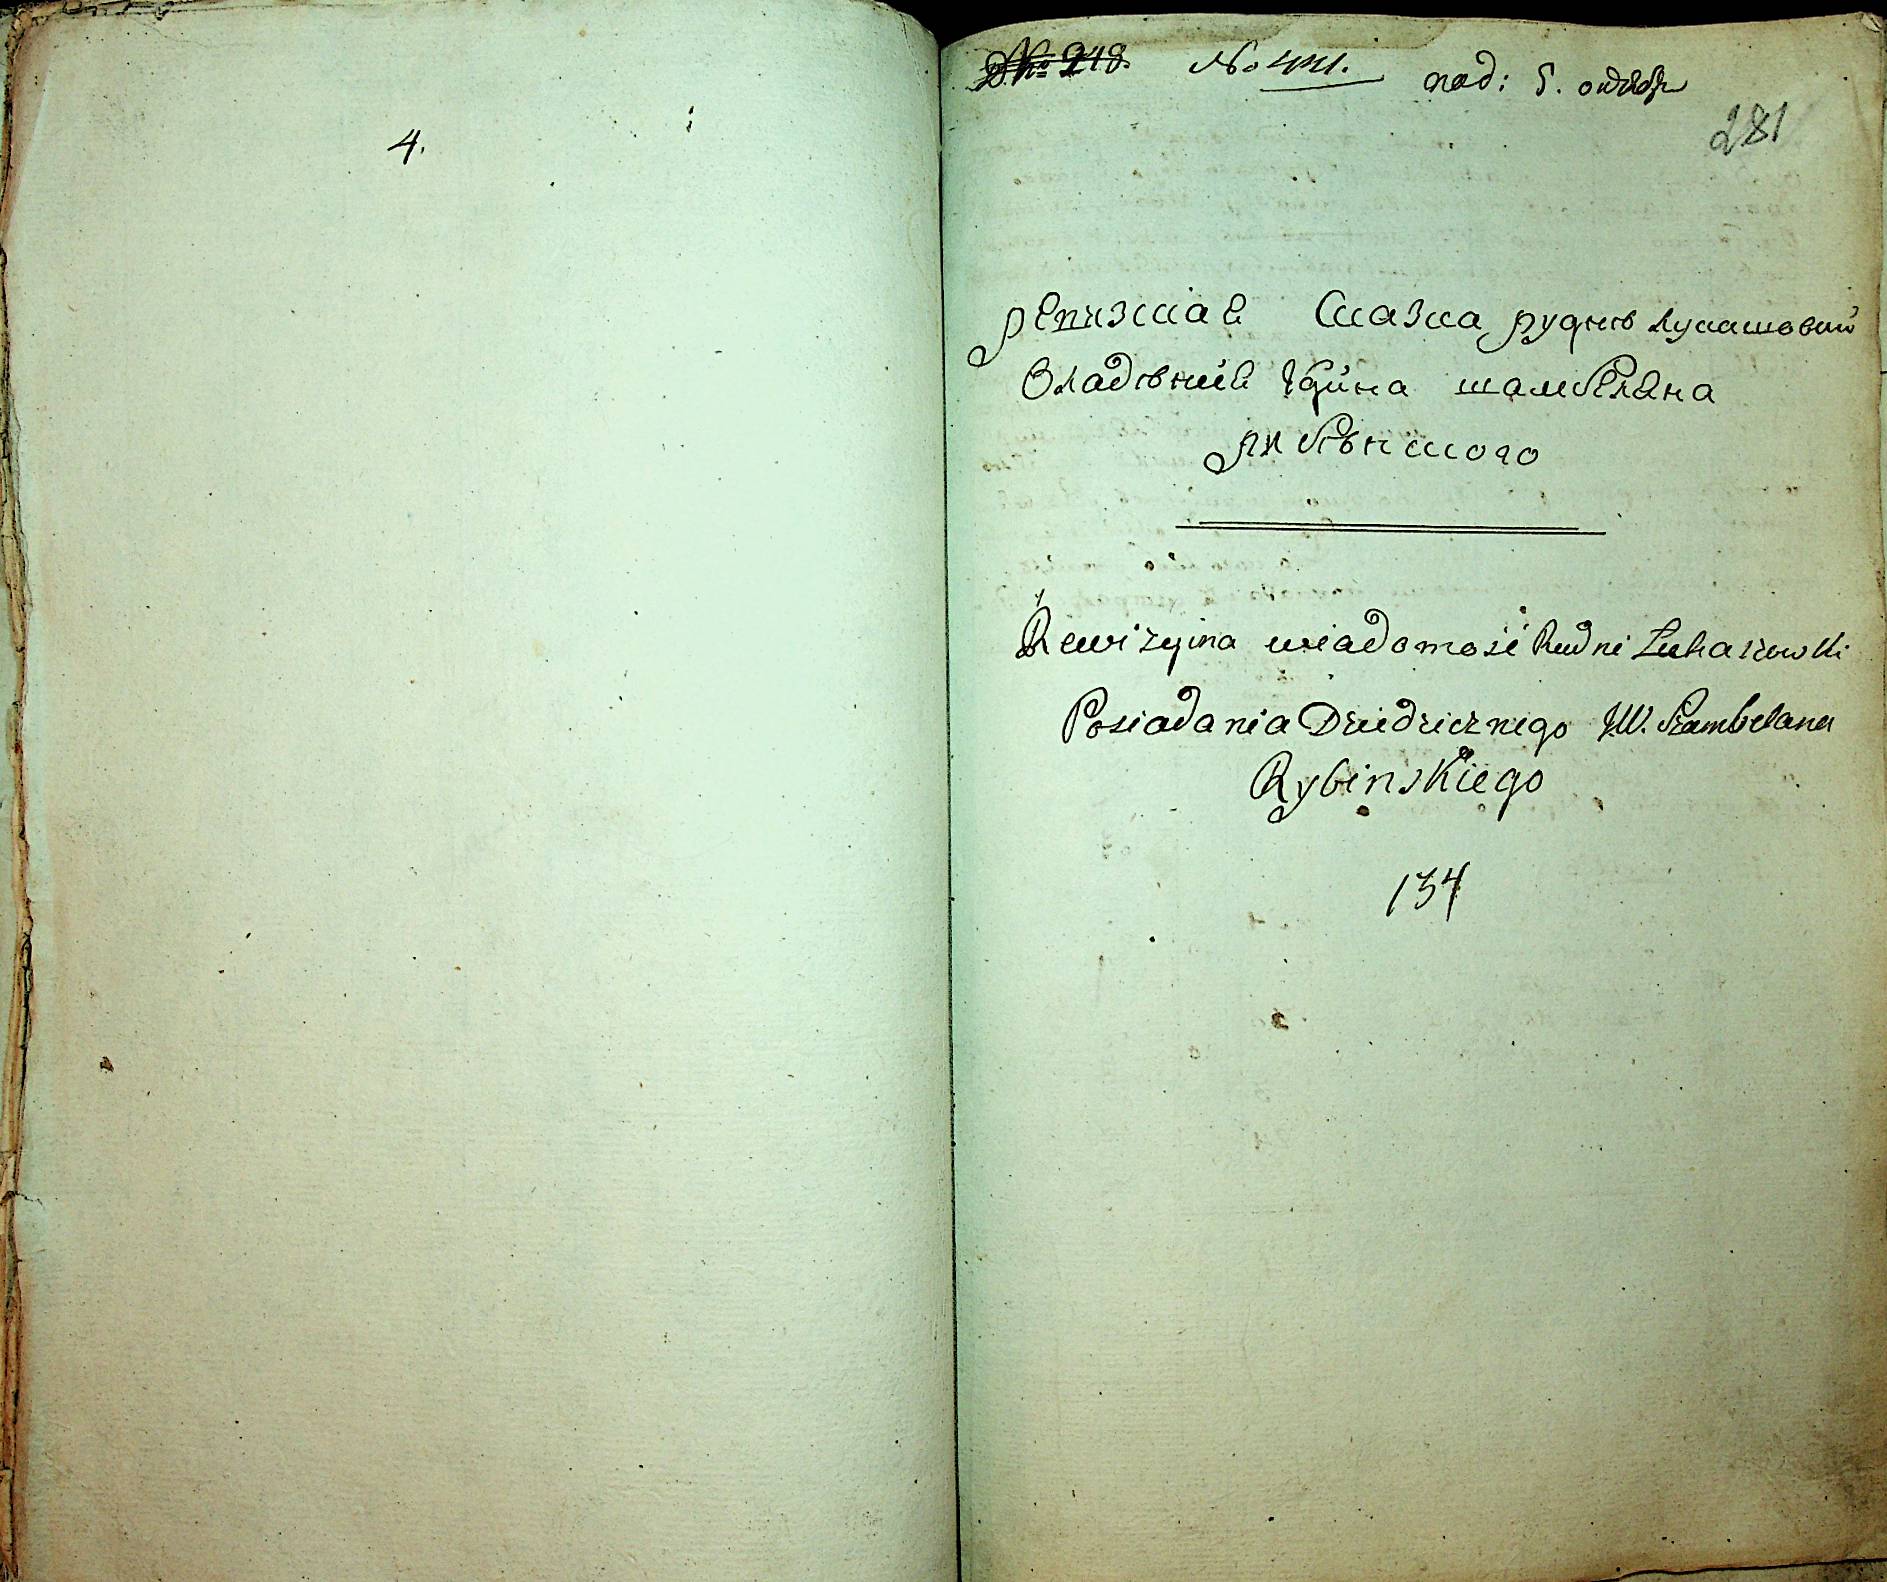 4.
№ 218. № 441. под: 5. октбр
281
ревизская Сказка рудни лукашовки
Владения Пана шамбеляна
рибѣнского
Rewizyina wiadomość Rudni Łukaszowki
Posiadania Dziedzicznego JW. Szambelana
Rybinskiego
134